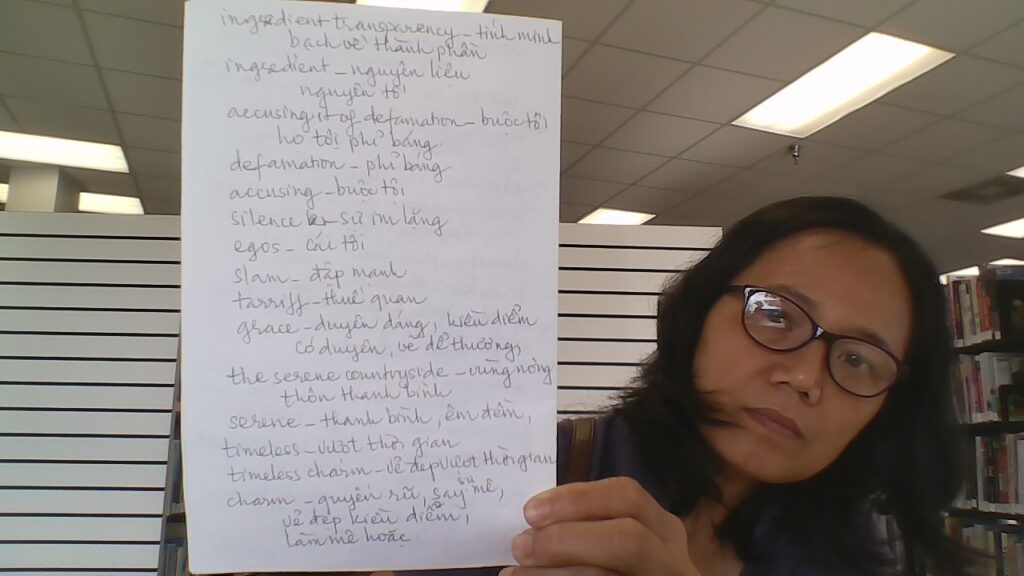 ingredient transparency – tính minh
bạch về thành phần
ingredient – nguyên liệu
nguyên tố
accusing it of defamation – buộc tội
họ tội phỉ báng.
defamation – phỉ báng
accusing – buộc tội
silence – sự im lặng
egos – cái tôi
slam – đập mạnh
tarriff – thuế quan
grace – duyên dáng, kiều diễm
có duyên, vẻ dễ thương,
the serene countryside – vùng nông
thôn thanh bình
serene – thanh bình, êm đềm,
timeless – vượt thời gian
timeless charm – vẻ đẹp vượt thời gian
charm – quyến rũ, say sưa mê,
vẻ đẹp kiều diễm,
làm mê hoặc